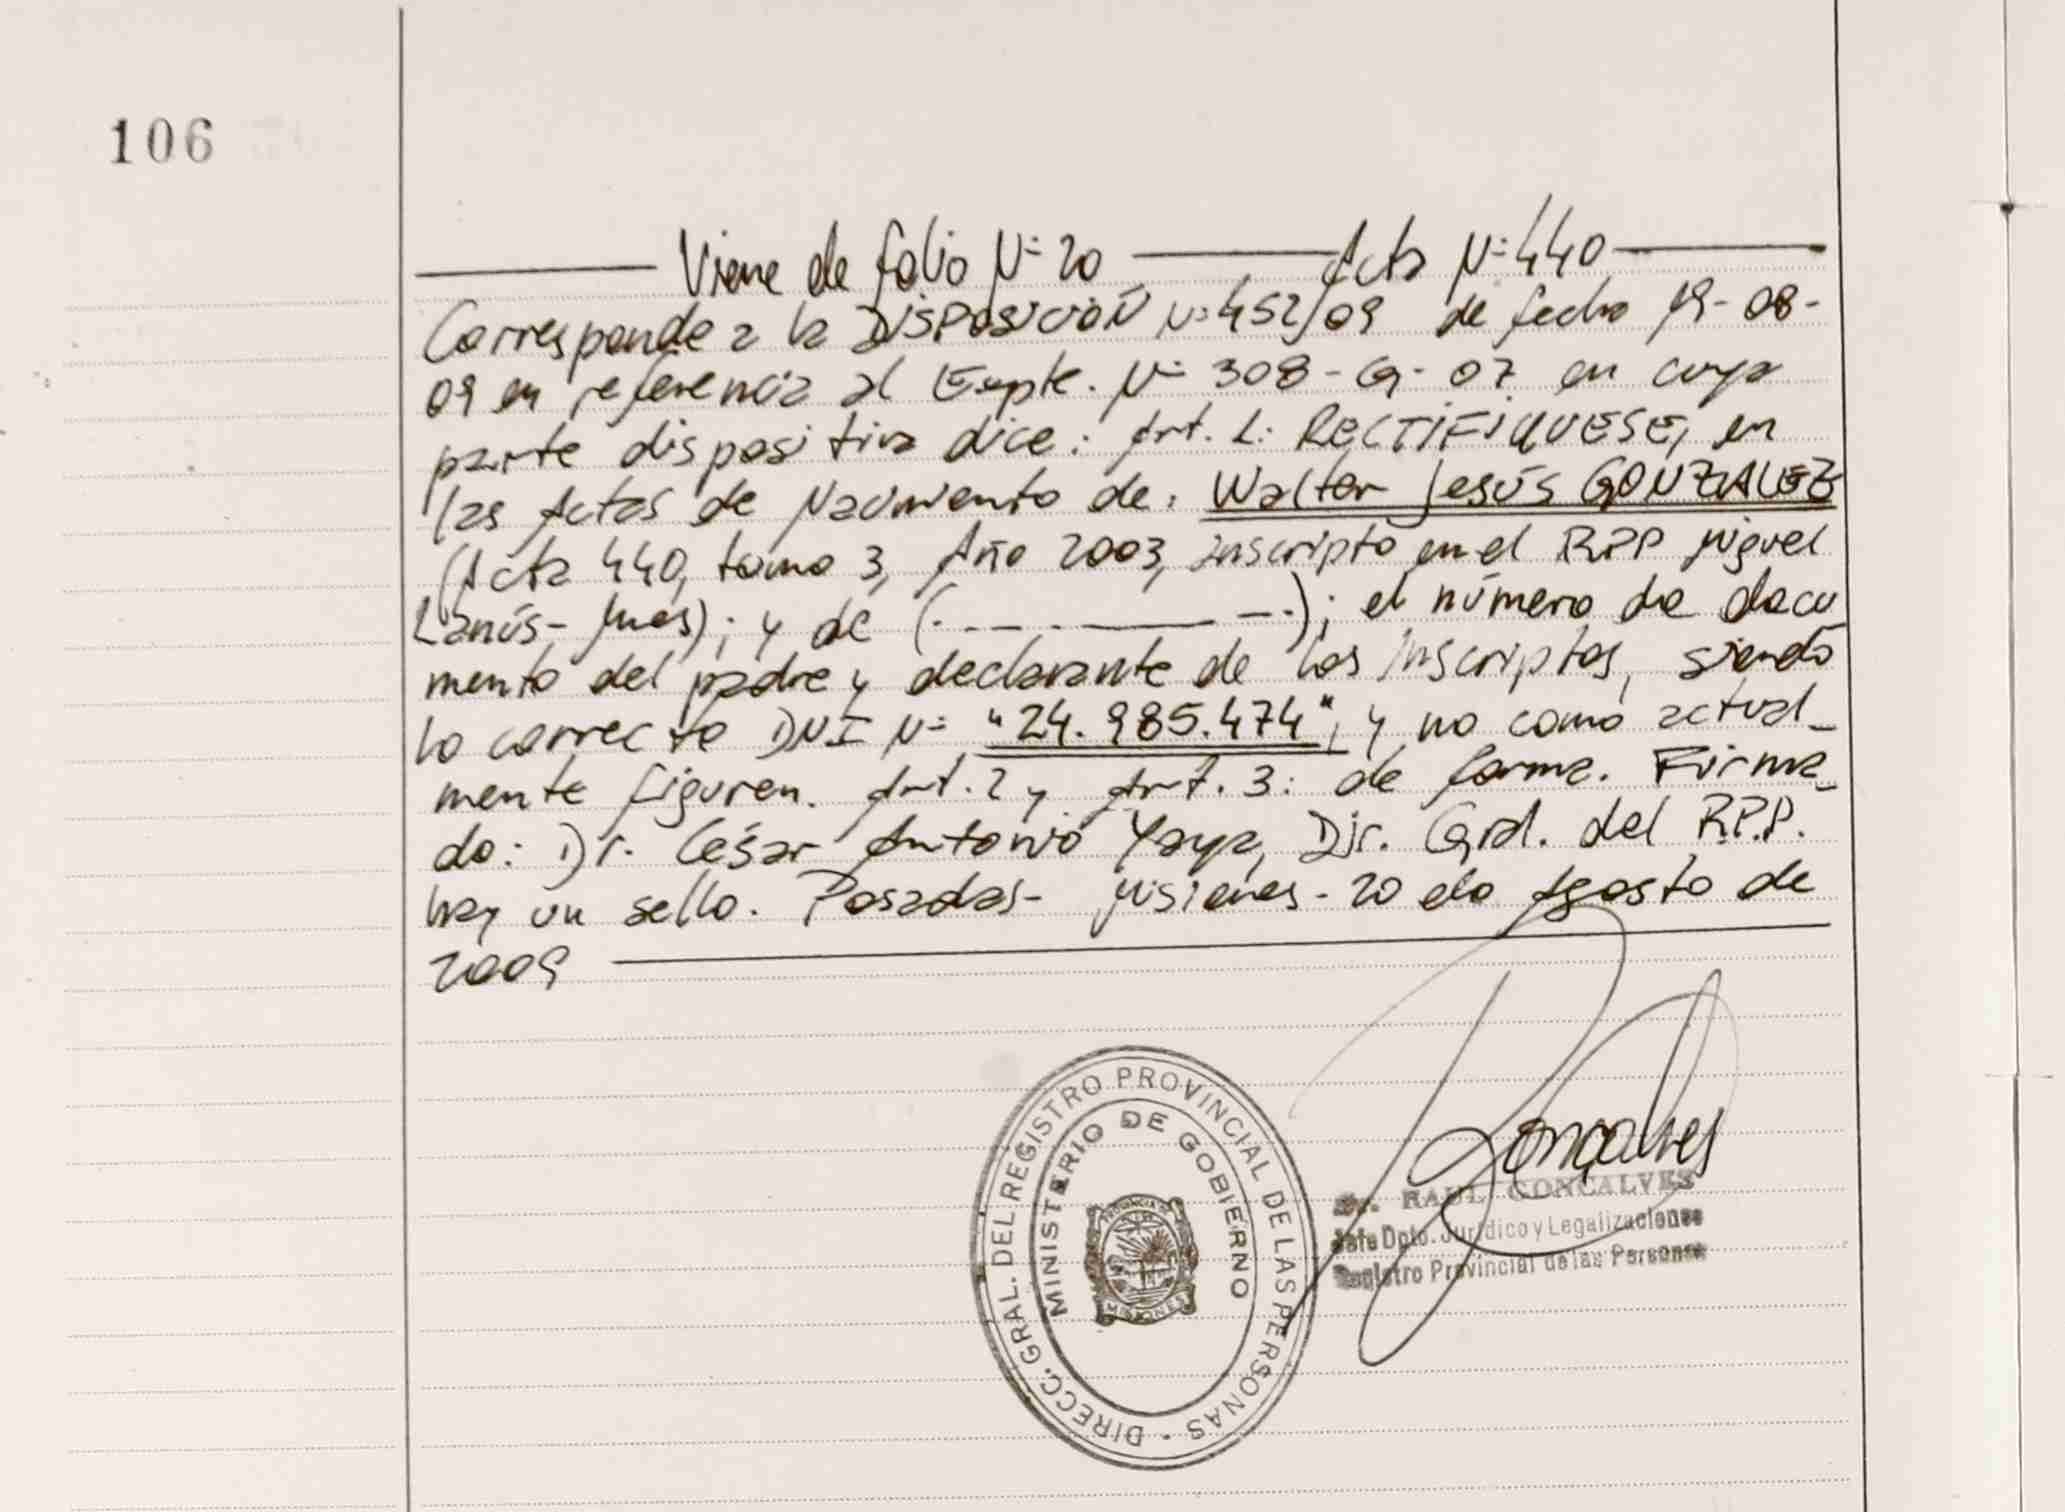 106
Viene de folio Nº 20 Acta Nº 440
Corresponde a la DISPOSICIÓN Nº 452/09 de fecha 19-08-
09 en referencia al Expte. Nº 308-G-07 en cuya
parte dispositiva dice: Art. 1: RECTIFIQUESE, en
las Actas de Nacimiento de: Walter Jesús GONZALEZ
(Acta 440, tomo 3, Año 2003, inscripto en el RPP Miguel
Lanús - Mnes); y de (. — — — — .); el número de docu
mento del padre y declarante de los inscriptos, siendo
lo correcto DNI Nº "24.985.474", y no como actual_
mente figuren. Art. 2 y Art. 3: de forma. Firma_
do: Dr. César Antonio Yaya, Dir. Gral. del R.P.P.
hay un sello. Posadas - Misiones - 20 de Agosto de
2009
DIRECC. GRAL. DEL REGISTRO PROVINCIAL DE LAS PERSONAS
MINISTERIO DE GOBIERNO
MISIONES
Gonçalves
RAUL GONCALVES
Jefe Dpto. Jurídico y Legalizaciones
Registro Provincial de las Personas